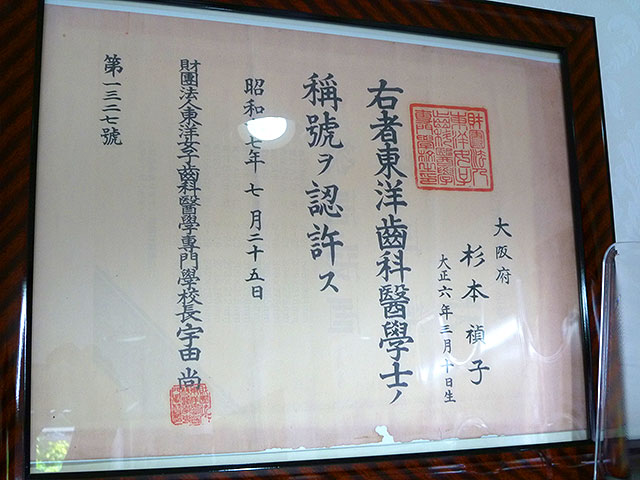 大阪府
杉本禎子
大正六年三月十日生
右者東洋齒科醫學士ノ
稱號ヲ認許ス
昭和 七年七月二十五日
財團法人東洋女子齒科醫學專門學校長宇田尚
第一三二七號